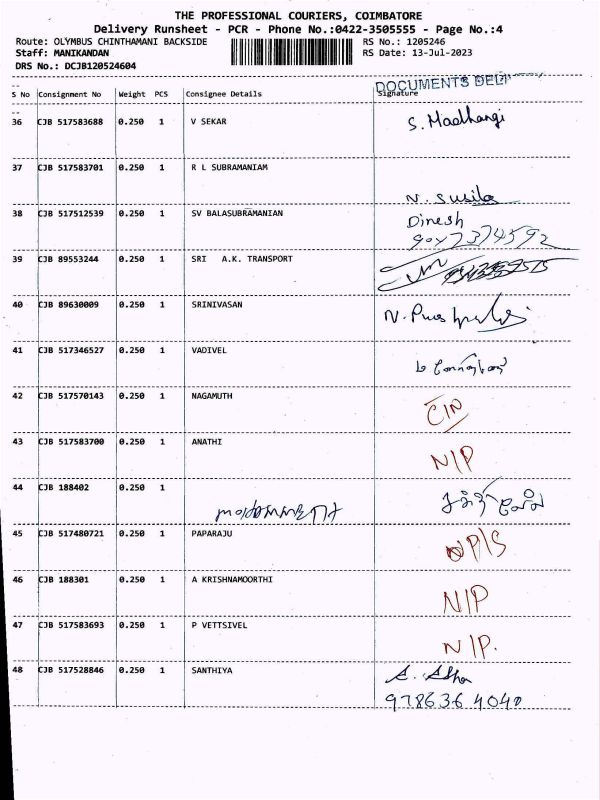 THE PROFESSIONAL COURIERS, COIMBATORE
Delivery Runsheet - PCR - Phone No.:0422-3505555 - Page No.:4
Route: OLYMBUS CHINTHAMANI BACKSIDE RS No.: 1205246
Staff: MANIKANDAN RS Date: 13-Jul-2023
DRS No.: DCJB120524604
DOCUMENTS
S No Consignment No Weight PCS Consignee Details Signature
36 CJB 517583688 0.250 1 V SEKAR S. Madhangi
37 CJB 517583701 0.250 1 R L SUBRAMANIAM
N. Susila
38 CJB 517512539 0.250 1 SV BALASUBRAMANIAN Dinesh
9047374592
39 CJB 89553244 0.250 1 SRI A.K. TRANSPORT
40 CJB 89630009 0.250 1 SRINIVASAN N.
41 CJB 517346527 0.250 1 VADIVEL
42 CJB 517570143 0.250 1 NAGAMUTH CIN
43 CJB 517583700 0.250 1 ANATHI N/P
44 CJB 188402 0.250 1
45 CJB 517480721 0.250 1 PAPARAJU
46 CJB 188301 0.250 1 A KRISHNAMOORTHI N/P
47 CJB 517583693 0.250 1 P VETTSIVEL N/P.
48 CJB 517528846 0.250 1 SANTHIYA A. Asha
978636 4040